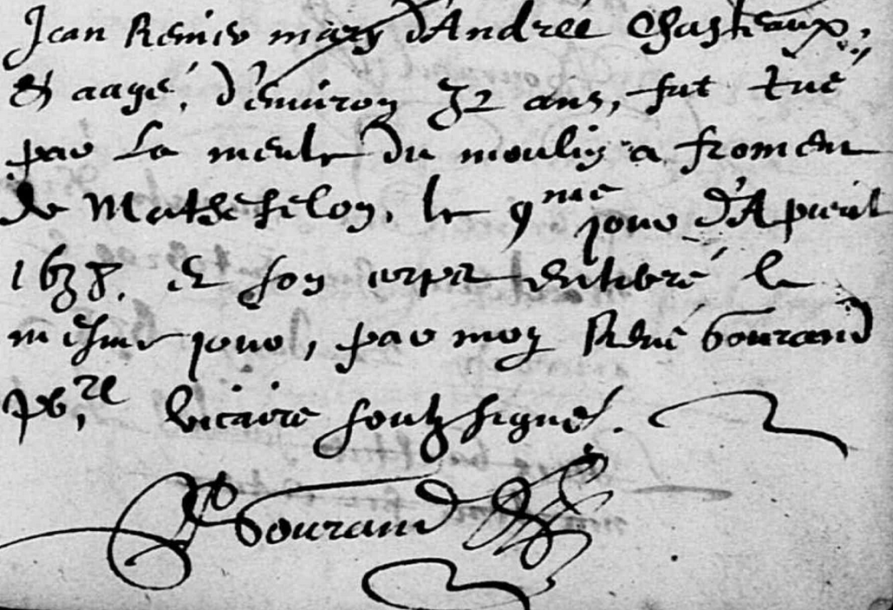 Jean Renier mary d'Andrée Chasteaux,
& aagé, d'environ 32 ans, fut tué
par la meule du moulin a froment
de Mathefelon, le 9me jour d'Apvril
1638. et son corps enterré le
mesme jour, par moy René Gourand
pb,re vicaire soubsigné.
Gourand